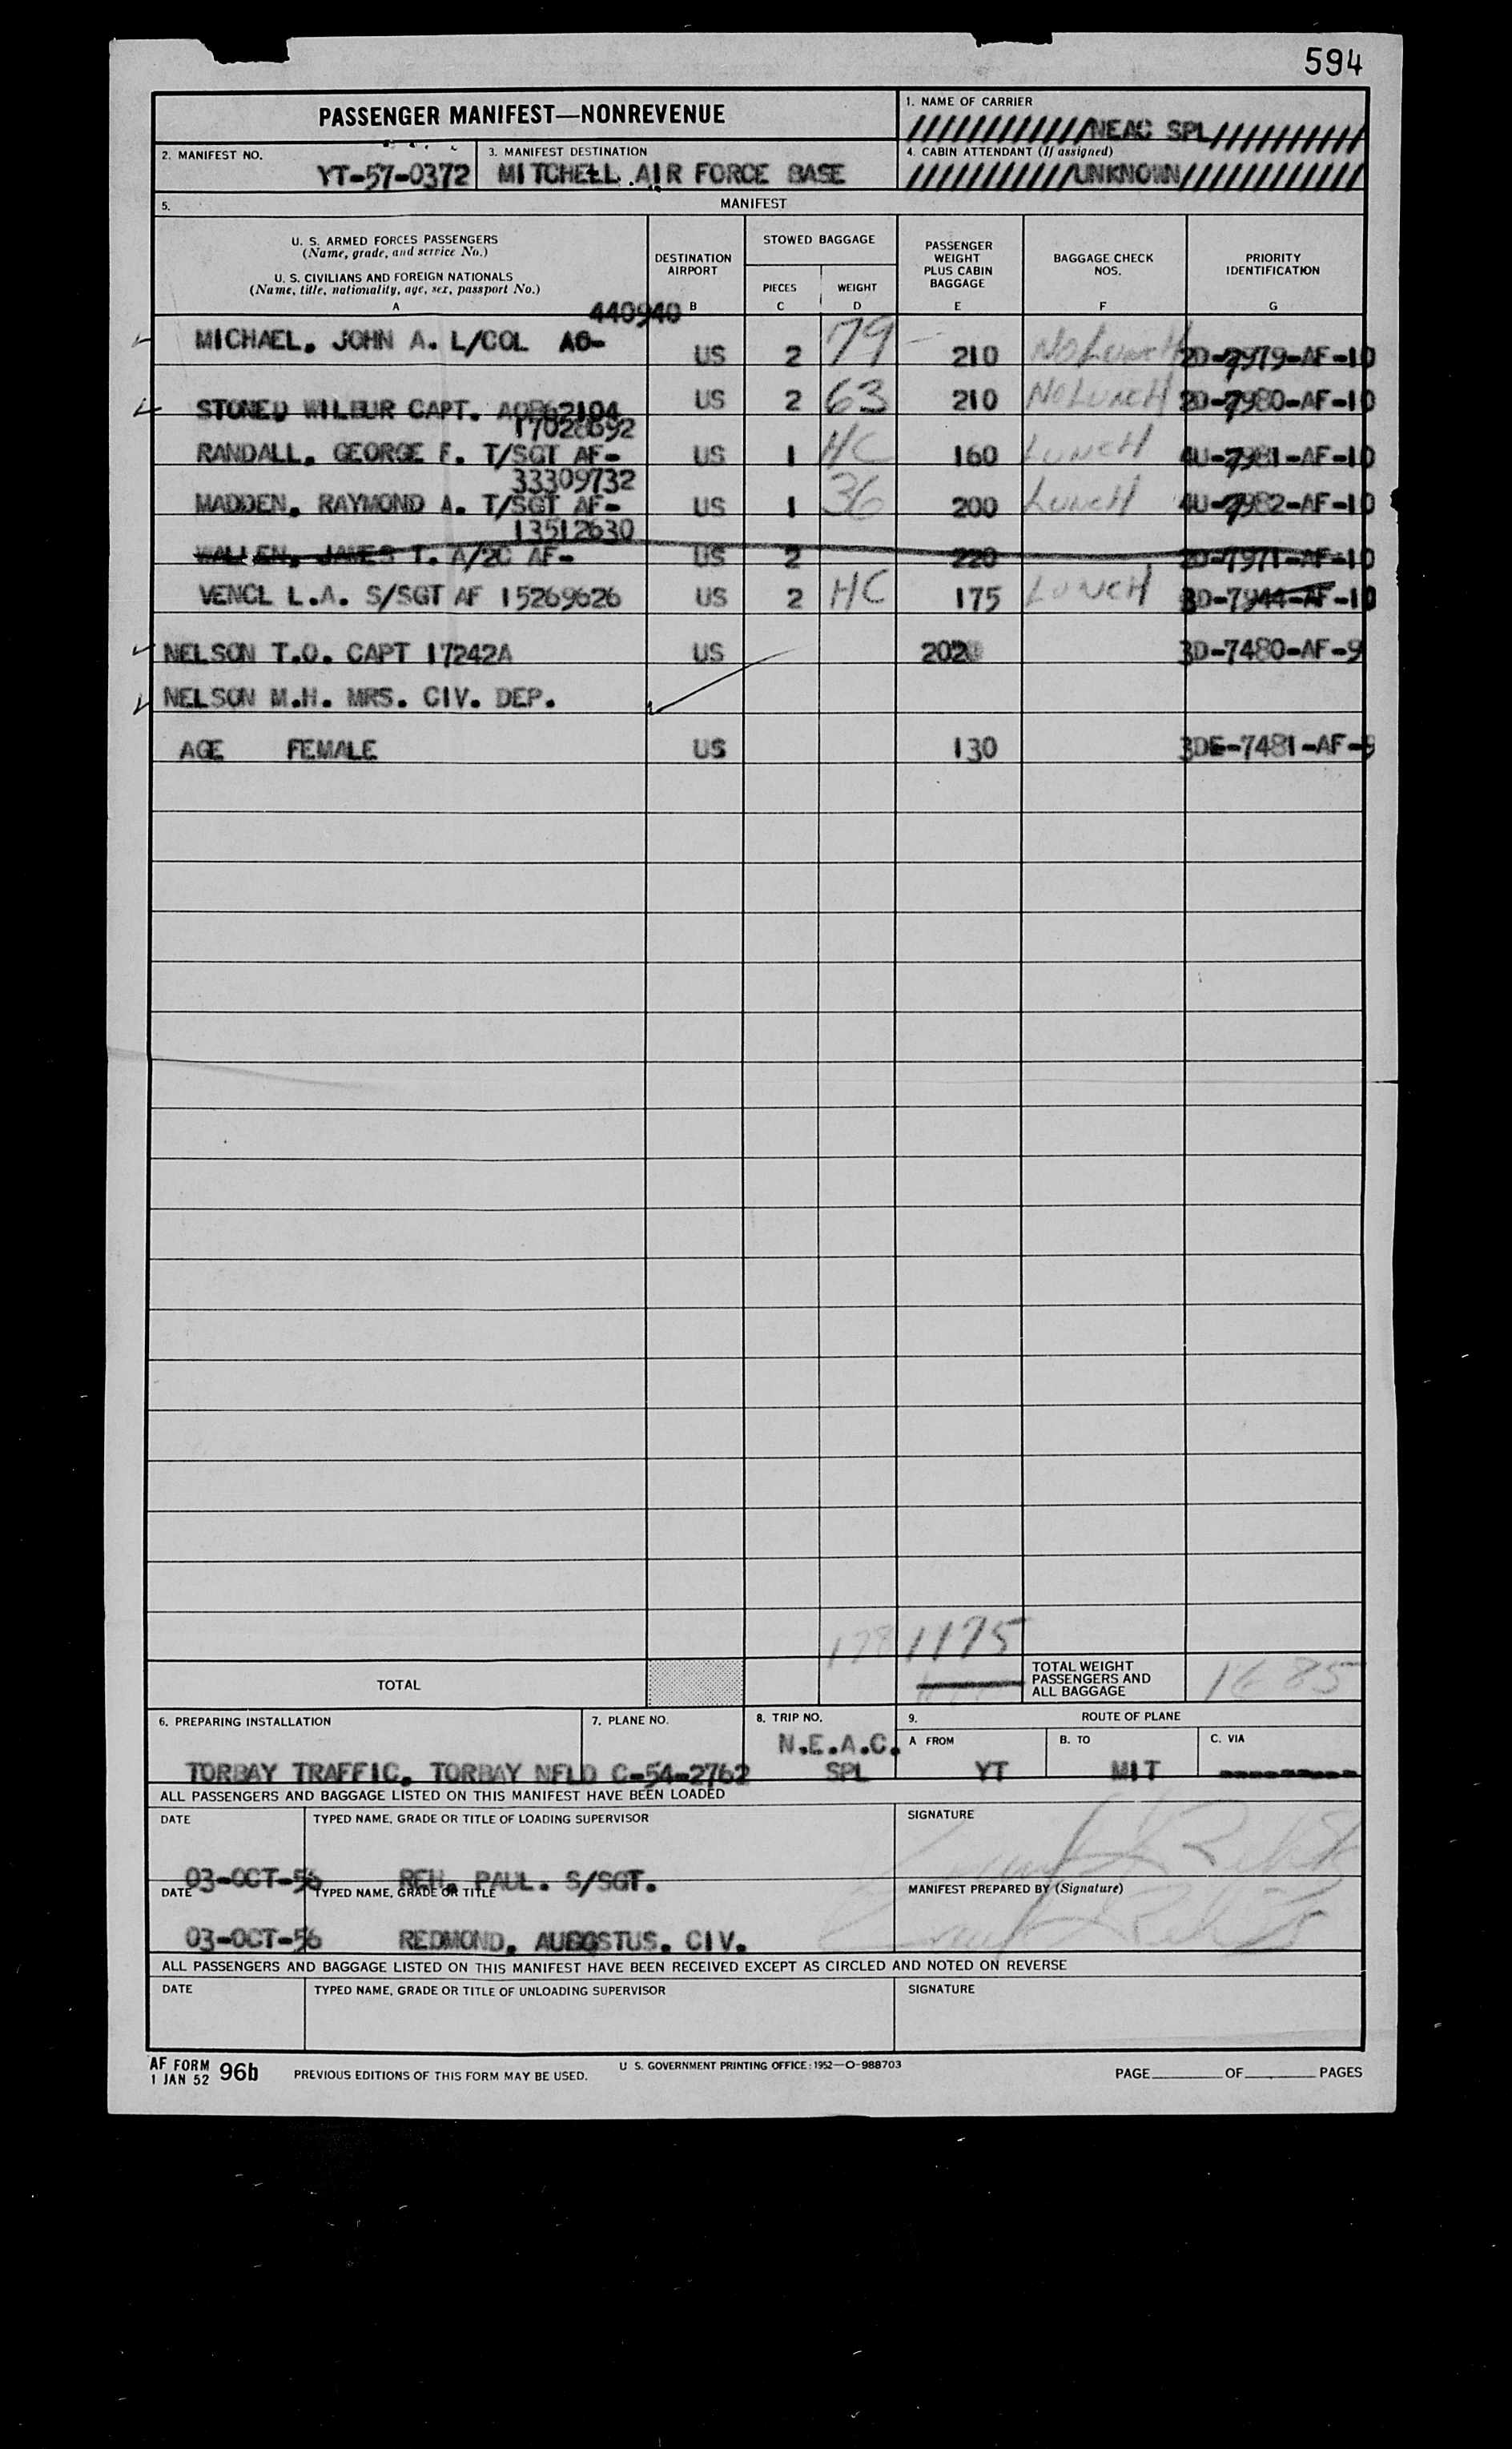 594
PASSENGER MANIFEST—NONREVENUE
1. NAME OF CARRIER
////////////NEAC SPL//////////
2. MANIFEST NO.
YT-57-0372
3. MANIFEST DESTINATION
MITCHELL AIR FORCE BASE
4. CABIN ATTENDANT (If assigned)
///////////UNKNOWN////////////
5. MANIFEST
U. S. ARMED FORCES PASSENGERS
(Name, grade, and service No.)
U. S. CIVILIANS AND FOREIGN NATIONALS
(Name, title, nationality, age, sex, passport No.)
A
DESTINATION AIRPORT
B
STOWED BAGGAGE
PIECES
C
WEIGHT
D
PASSENGER WEIGHT PLUS CABIN BAGGAGE
E
BAGGAGE CHECK NOS.
F
PRIORITY IDENTIFICATION
G
440940
MICHAEL, JOHN A. L/COL AO- US 2 79 210 NO LUNCH 2D-7979-AF-10
STONED WILBUR CAPT. US 2 63 210 NO LUNCH 2D-7980-AF-10
17028692
RANDALL, GEORGE F. T/SGT AF- US 1 HC 160 LUNCH 4U-7981-AF-10
33309732
MADDEN, RAYMOND A. T/SGT AF- US 1 36 200 LUNCH 4U-7982-AF-10
13512630
WALLEN, JAMES T. A/2C AF- US 2 220 2D-7971-AF-10
VENCL L.A. S/SGT AF 15269626 US 2 HC 175 LUNCH 3D-7944-AF-10
NELSON T.O. CAPT 17242A US 202 3D-7480-AF-9
NELSON M.H. MRS. CIV. DEP.
AGE FEMALE US 130 3DE-7481-AF-9
178 1175
TOTAL
TOTAL WEIGHT PASSENGERS AND ALL BAGGAGE
1685
6. PREPARING INSTALLATION
TORBAY TRAFFIC, TORBAY NFLD
7. PLANE NO.
C-54-2762
8. TRIP NO.
N.E.A.C.
SPL
9. ROUTE OF PLANE
A FROM
YT
B. TO
MIT
C. VIA
----------
ALL PASSENGERS AND BAGGAGE LISTED ON THIS MANIFEST HAVE BEEN LOADED
DATE
TYPED NAME, GRADE OR TITLE OF LOADING SUPERVISOR
SIGNATURE
03-OCT-56 REH, PAUL. S/SGT.
DATE
TYPED NAME, GRADE OR TITLE
MANIFEST PREPARED BY (Signature)
03-OCT-56 REDMOND, AUGOSTUS. CIV.
ALL PASSENGERS AND BAGGAGE LISTED ON THIS MANIFEST HAVE BEEN RECEIVED EXCEPT AS CIRCLED AND NOTED ON REVERSE
DATE
TYPED NAME, GRADE OR TITLE OF UNLOADING SUPERVISOR
SIGNATURE
AF FORM 96b
1 JAN 52
PREVIOUS EDITIONS OF THIS FORM MAY BE USED.
U S. GOVERNMENT PRINTING OFFICE: 1952—O-988703
PAGE OF PAGES